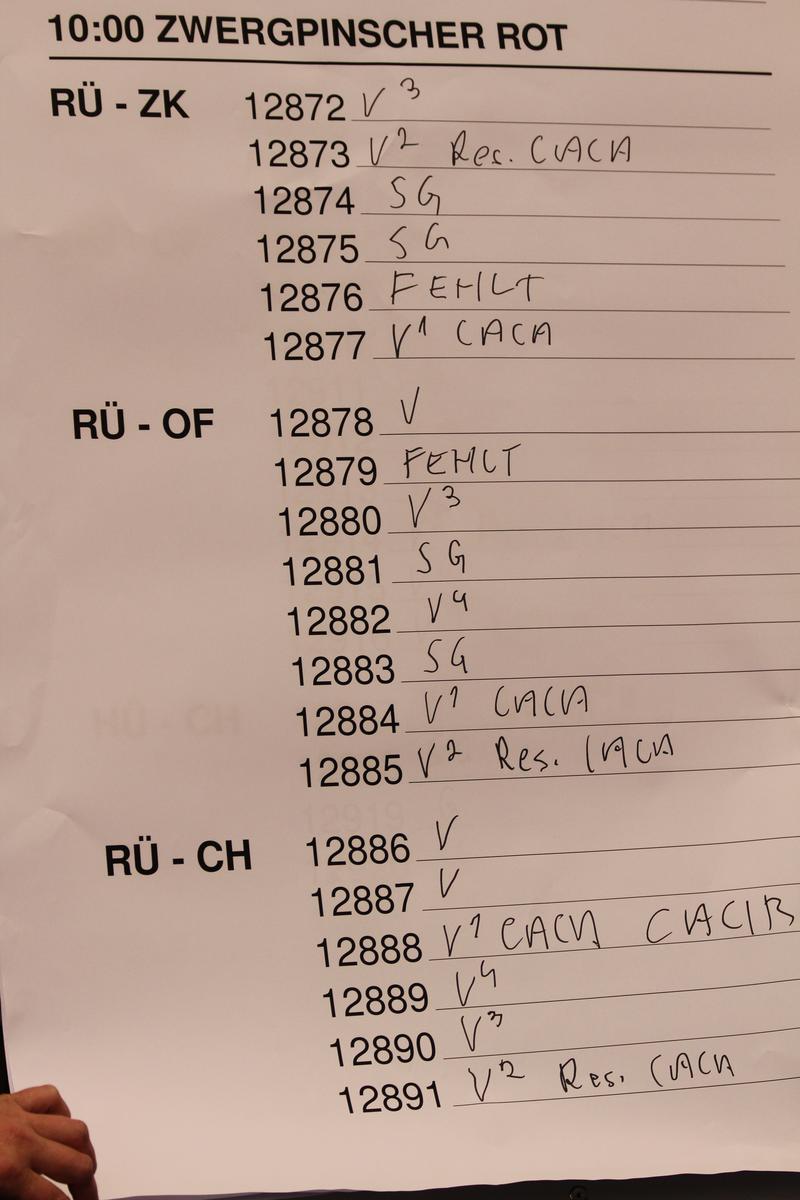 10:00 ZWERGPINSCHER ROT
RÜ - ZK 12872 V3
12873 V2 Res. CACA
12874 SG
12875 SG
12876 FEHLT
12877 V1 CACA
RÜ - OF 12878 V
12879 FEHLT
12880 V3
12881 SG
12882 V4
12883 SG
12884 V1 CACA
12885 V2 Res. CACA
RÜ - CH 12886 V
12887 V
12888 V1 CACA CACIB
12889 V4
12890 V3
12891 V2 Res. CACA